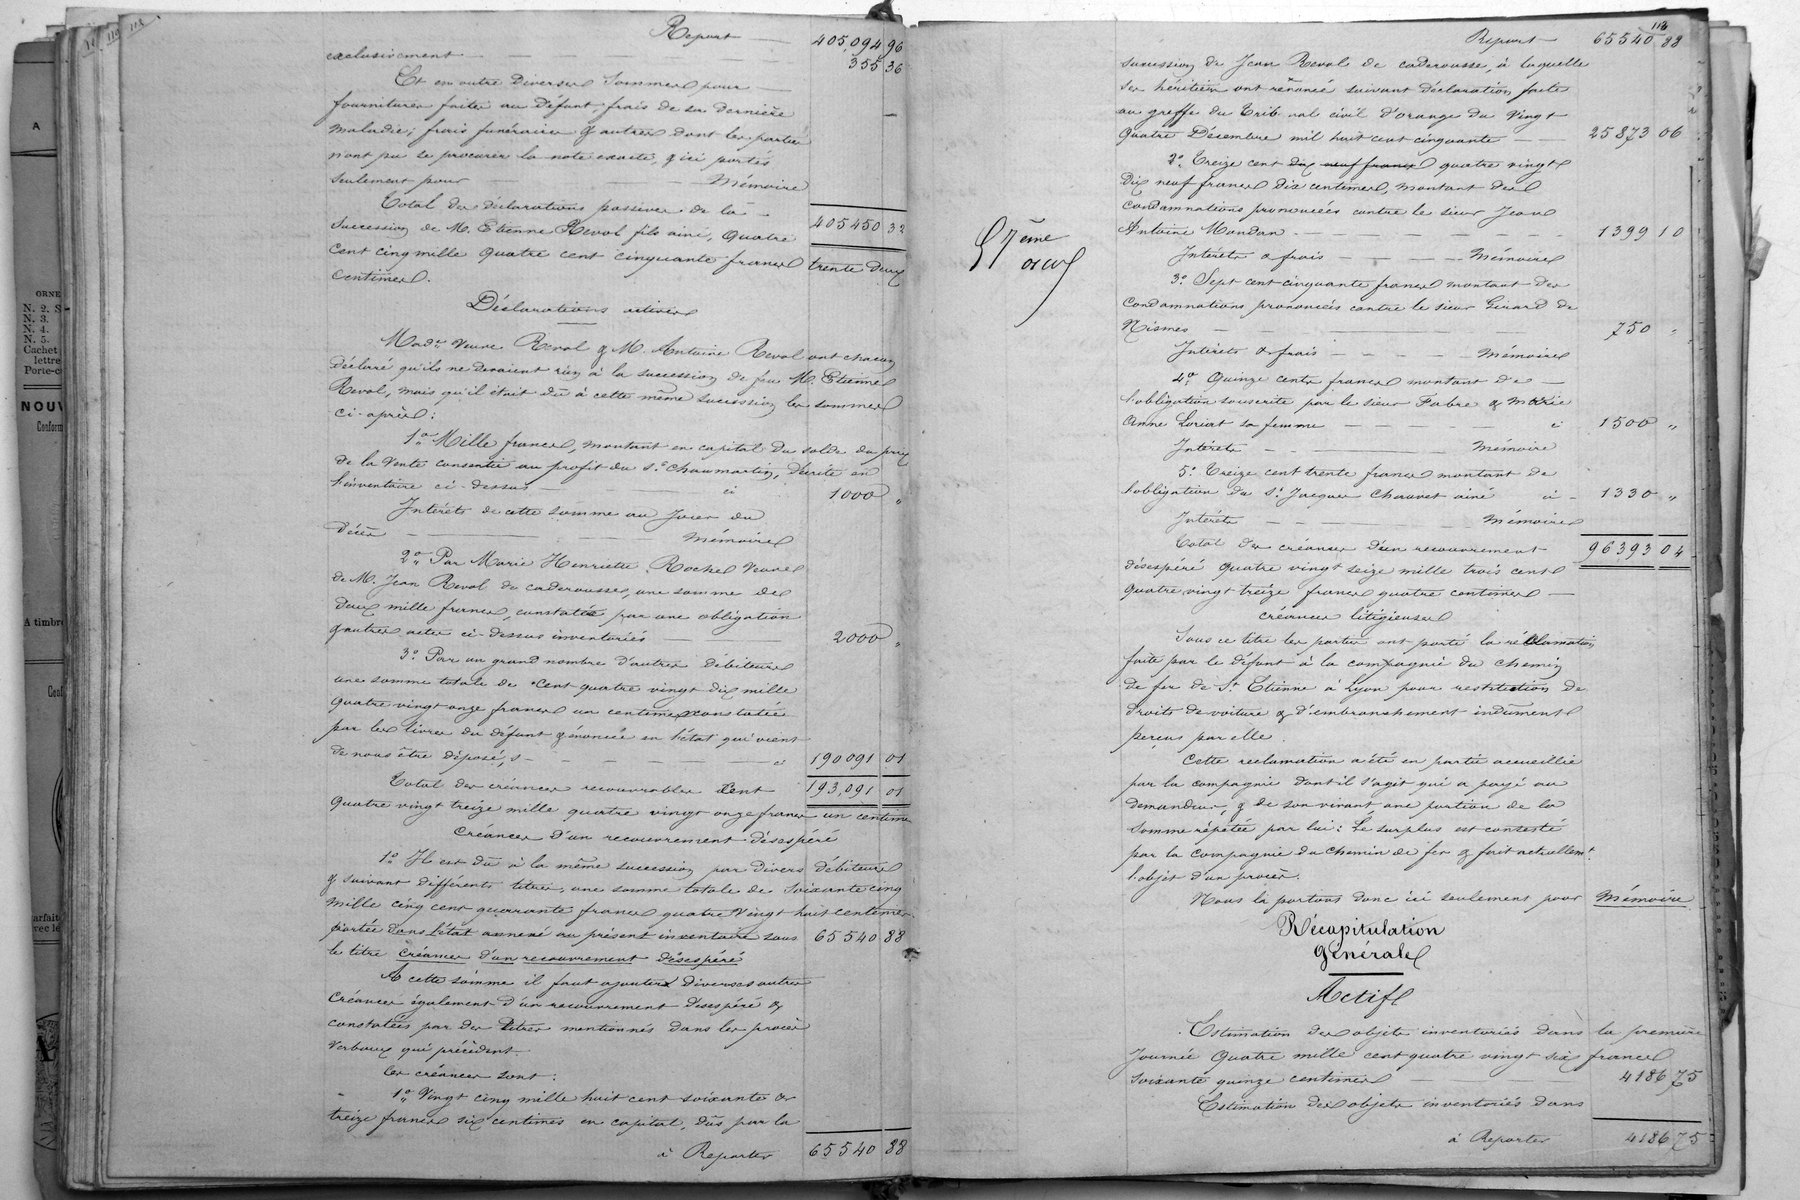 113
Report — 405,094 96
exclusivement — — — — — 355 36
Et en outre Diverses Sommes pour —
fournitures faites au Défunt, frais de sa dernière
maladie, frais funéraires & autres dont les parties —
n'ont pu se procurer la note exacte, & ici portés
seulement pour — — — Mémoire
Total des déclarations passives de la —
Succession de M. Etienne Revol fils ainé, Quatre 405450 32
Cent cinq mille quatre cent cinquante francs trente deux
Centimes.
Déclarations actives
Made Veuve Revol & M. Antoine Revol ont chacun
déclaré qu'ils ne devaient rien à la succession de feu M. Etienne
Revol, mais qu'il était dû à cette même succession les sommes
ci-après :
1o Mille francs, montant en capital du solde du prix
de la Vente consentie au profit du s. Chaumartin, décrite en
l'inventaire ci-dessus — — ci 1000 "
Intérêts de cette somme au jour du
Décès — — — — Mémoire
2o Par Marie Henriette Rochel Veuve
de M. Jean Revol de caderousse, une somme de
Deux mille francs, constatée par une obligation
& autres actes ci-dessus inventoriés — — 2000 "
3o Par un grand nombre d'autres débiteurs
une somme totale de cent quatre vingt dix mille
quatre vingt onze francs un centime constatée
par les livres du défunt & énoncée en l'état qui vient
de nous être déposé, — — — — ci 190091 01
Total des créances recouvrables Cent 193,091 01
quatre vingt treize mille quatre vingt onze francs un centime
Créances d'un recouvrement désespéré
1o Il est dû à la même succession par divers débiteurs
& suivant différents titres, une somme totale de Soixante cinq
mille cinq cent quarante francs quatre vingt huit centimes
portée dans l'état annexé au présent inventaire sous 65540 88
le titre créances d'un recouvrement désespéré
A cette somme il faut ajouter diverses autres
Créances également d'un recouvrement désespéré &
constatées par des titres mentionnés dans les procès
Verbaux qui précèdent.
Ces créances sont :
1o Vingt cinq mille huit cent soixante &
treize francs six centimes en capital, dûs par la
à Reporter 65540 88
113
Report 65540 88
succession de Jean Revol de caderousse, à laquelle
ses héritiers ont renoncé suivant déclaration faite
au greffe du Tribunal civil d'orange du Vingt
quatre Décembre mil huit cent cinquante — — 25873 06
2o Treize cent dix neuf francs quatre vingt
Dix neuf francs dix centimes, montant des
Condamnations prononcées contre le sieur Jean
Antoine Mondan — — — — — 1399 10
Intérêts & frais — — — Mémoire
3o Sept cent cinquante francs montant des
Condamnations prononcées contre le sieur Girard de
Nismes — — — — — 750 "
Intérêts & frais — — — Mémoire
4o Quinze cents francs montant de —
l'obligation souscrite par le sieur Fabre & Marie
Anne Loriat sa femme — — — — ci 1500 "
Intérêts — — — Mémoire
5o Treize cent trente francs montant de
l'obligation du Sr Jacques Chauvet ainé ci — 1330 "
Intérêts — — — Mémoire
Total des créances d'un recouvrement 96393 04
désespéré quatre vingt seize mille trois cent
quatre vingt treize francs quatre centimes —
créances litigieuses
Sous ce titre les parties ont porté la réclamation
faite par le défunt à la compagnie du chemin
de fer de St Etienne à Lyon pour restitution de
droits de voiture & d'embranchement indûment
perçus par elle.
Cette reclamation a été en partie accueillie
par la compagnie dont il s'agit qui a payé au
demandeur, & de son vivant une portion de la
somme répétée par lui : Le surplus est contesté
par la compagnie du chemin de fer & fait actuellemt
l'objet d'un procès.
Nous la portons donc ici seulement pour Mémoire
Récapitulation
générale
Actif
Estimation des objets inventoriés dans la première
journée quatre mille cent quatre vingt six francs
soixante quinze centimes — — — 4186 75
Estimation des objets inventoriés dans
à Reporter 4186 75